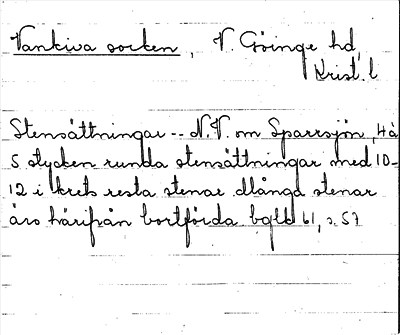 Vankiva socken, V. Göinge hd,
Krist. l
Stensättningar -- N.V. om Sparrsjön, 4 à
5 stycken runda stensättningar med 10-
12 i krets resta stenar. Många stenar
äro härifrån bortförda. bqld 61, s. 57